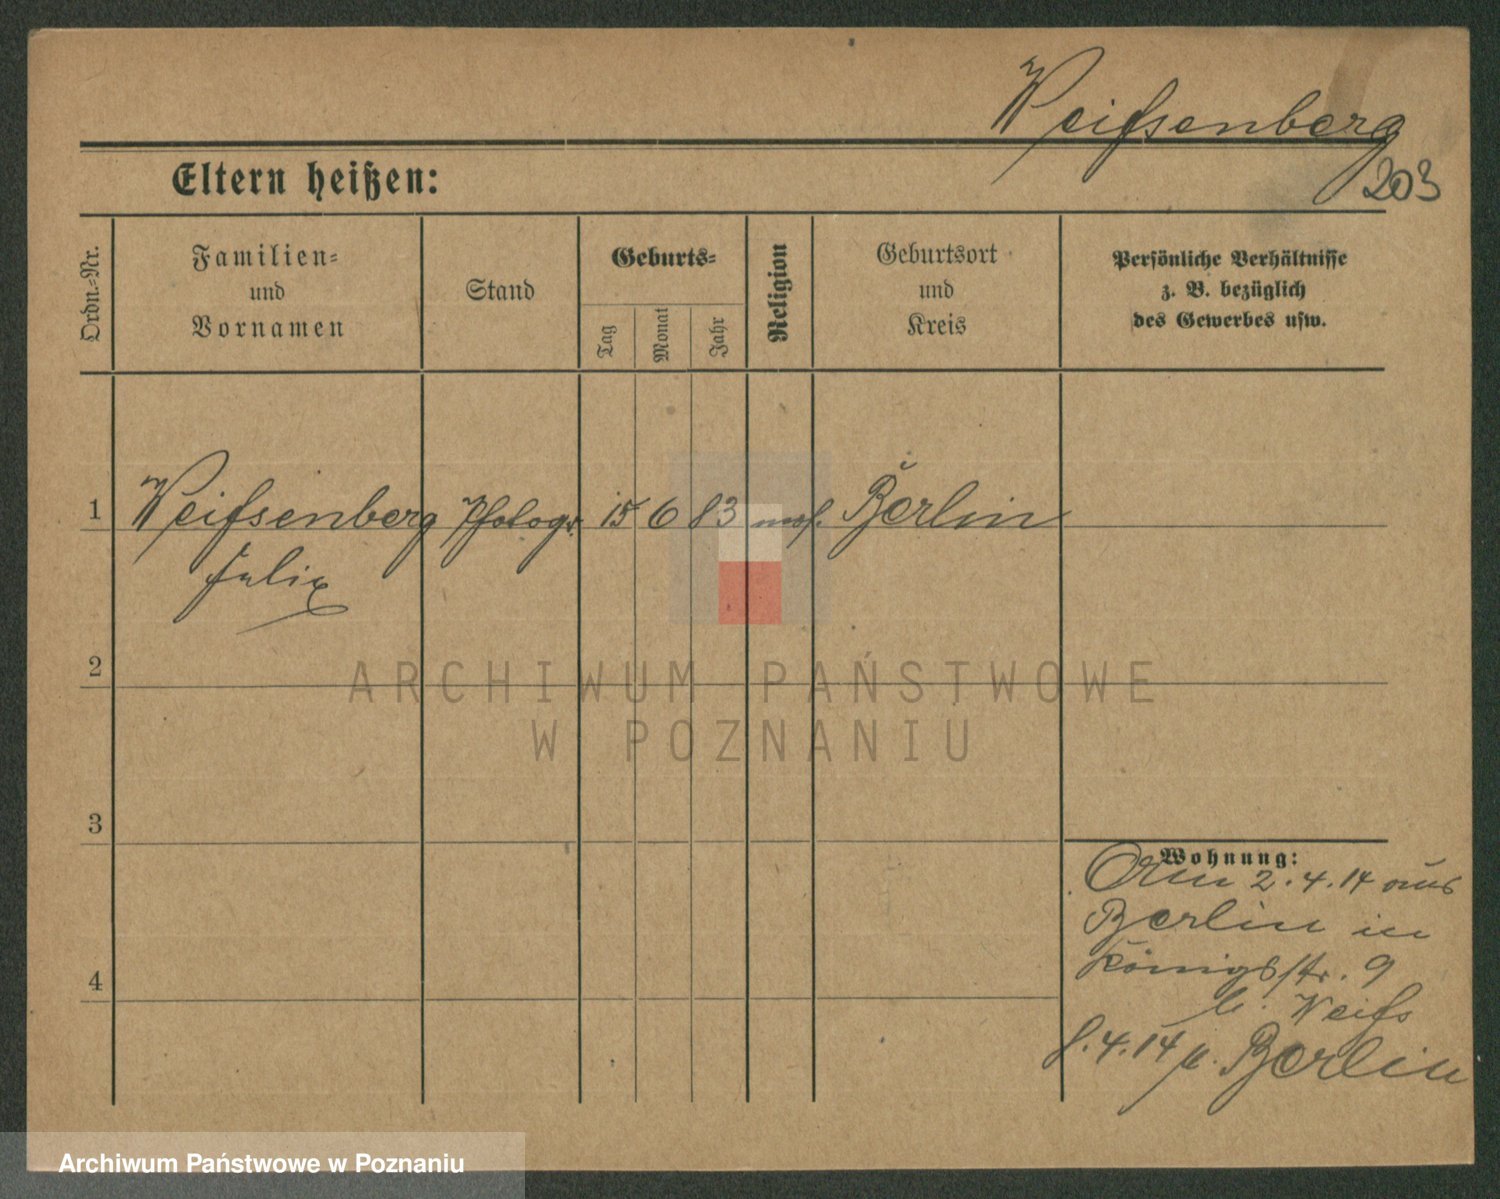 Weißenberg
203
Eltern heißen:
Ordn.-Nr.
Familien-
und
Vornamen
Stand
Geburts-
Tag
Monat
Jahr
Religion
Geburtsort
und
Kreis
Persönliche Verhältnisse
z. B. bezüglich
des Gewerbes usw.
1 Weißenberg Photogr. 15 6 83 mos. Berlin
Felix
2
ARCHIWUM PAŃSTWOWE
W POZNANIU
3
Wohnung:
2.4.14 aus
Berlin in
Königsstr. 9
b. Weiß
4
8.4.14 n. Berlin
Archiwum Państwowe w Poznaniu